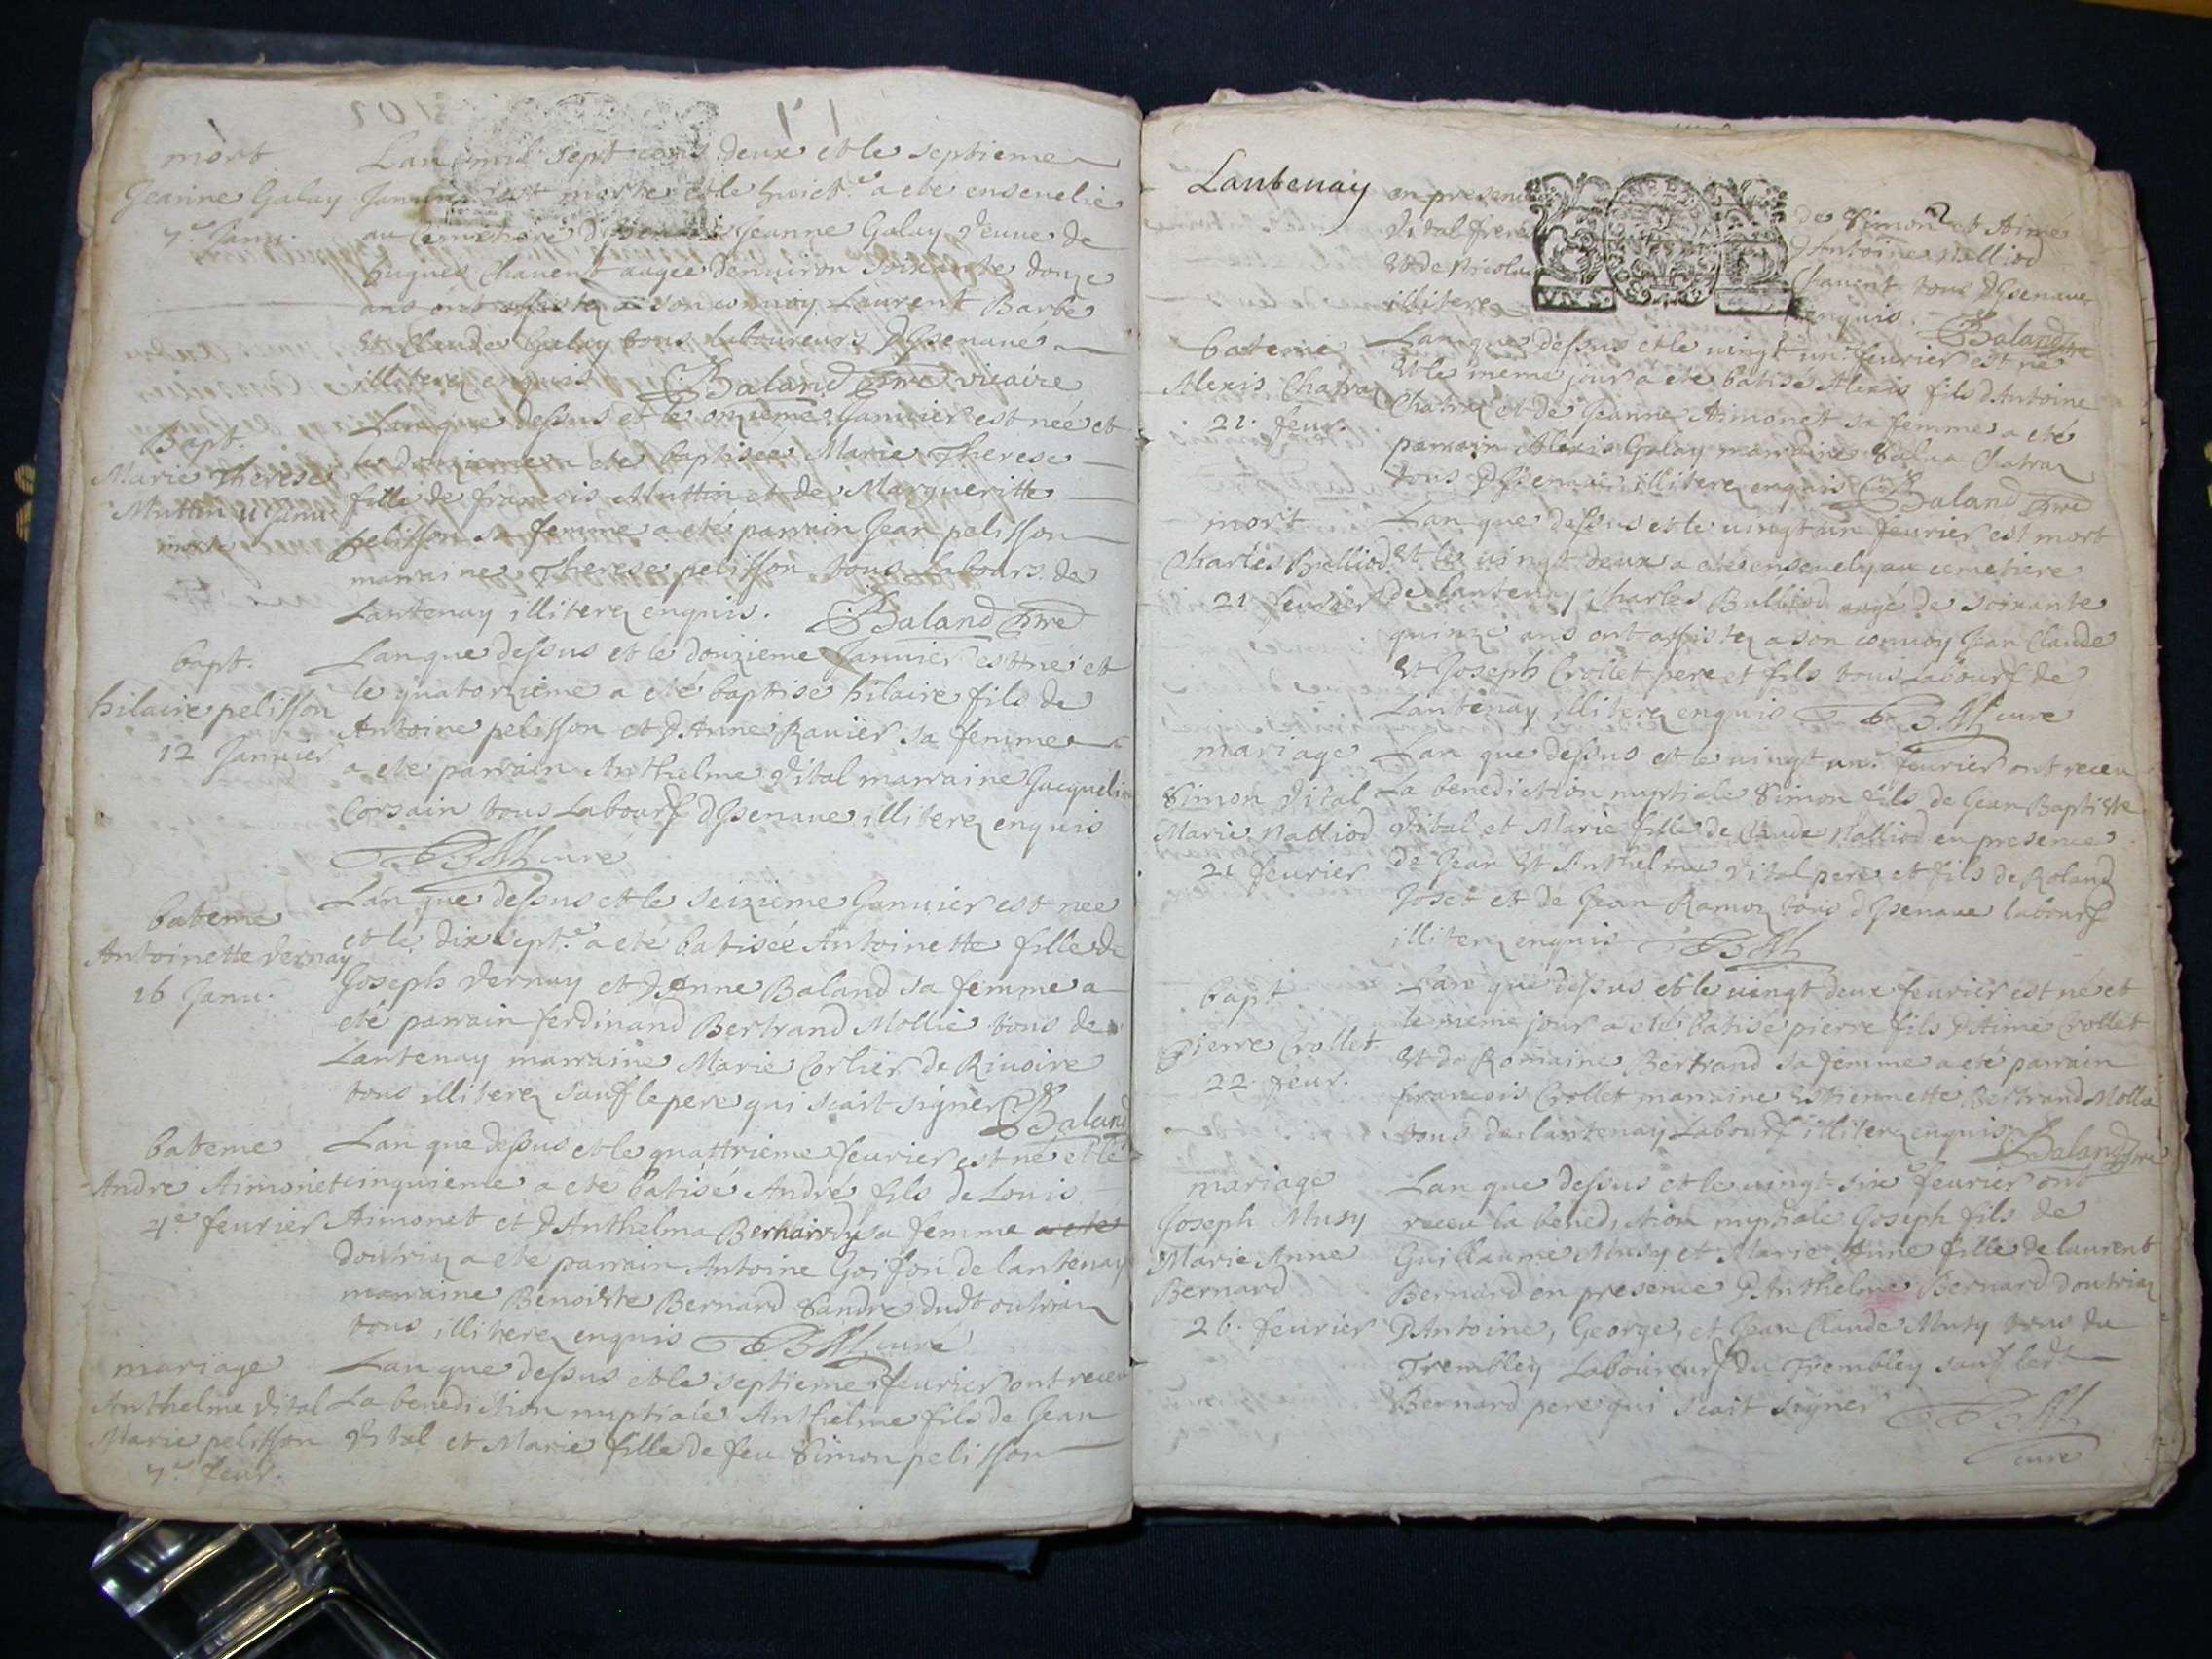 mort
Jeanne Galay
7.e Janu.
Lan mil sept cens deux et le septieme
Januier est morte et le huict.e a ete enseuelie
au Cemetiere Jeanne Galay veuue de
hugues Chauent aagee denuiron soixante douze
ans ont assistez a son conuoy Laurent Barbe
et Claude Galay tous laboureurs dJsenaue
illiterez enquis Baland pbre vicaire
Bapt.
Marie Therese
Muttin 11 Janu.
mort
Lan que dessus et le onzieme Januier est née et
le douzieme a ete baptisée Marie Therese
fille de francois Muttin et de Marguerite
pelisson sa femme a eté parrain Jean pelisson
marraine Therese pelisson tous labours. de
Lantenay illiterez enquis. Baland pbre
bapt.
hilaire pelisson
12 Januier
Lan que dessus et le douzieme Januier est né et
le quatorzieme a eté baptise hilaire fils de
Antoine pelisson et dAnne Rauier sa femme
a ete parrain Anthelme vital marraine Jacqueline
Corsain tous Labours dJsenaue illiterez enquis
curé
bateme
Antoinette vernay
16 Janu.
Lan que dessus et le seizieme Januier est nee
et le dix sept.e a eté batisée Antoinette fille de
Joseph vernay et dAnne Baland sa femme a
eté parrain ferdinand Bertrand Mollie tous de
Lantenay marraine Marie Corlier de Riuoire
tous illiterez sauf le pere qui scait signer Baland
bateme
Andre Aimonet
4.e feurier
Lan que dessus et le quattrieme feurier est né et le
cinquieme a ete batisé André fils de Louis
Aimonet et dAnthelma Bernard sa femme a eté
doutriaz a ete parrain Antoine Goifon de lantenay
marraine Benoiste Bernard Sandre dudt outriaz
tous illiterez enquis curé
mariage
Anthelme vital
Marie pelisson
7.e feur.
Lan que dessus et le septieme feurier ont receu
La benediction nuptiale Anthelme fils de Jean
vital et Marie fille de feu Simon pelisson
Lantenay
en presence de Simon et Aime
vital freres dAntoine Nalliod
et de Nicolas Chauent tous dJsenaue
illiterez enquis. Baland pbre
bateme
Alexis Chatraz
21. feur.
Lan que dessus et le uingt un.e feurier est né
et le meme jour a ete batisé Alexis fils dAntoine
Chatraz et de Jeanne Aimonet sa femme a eté
parrain Alexis Galay marraine Chatraz
tous dJsenaue illiterez enquis Baland pbre
mort
Charles Balliod
21 feurier
Lan que dessus et le uingt un feurier est mort
et le uingt deux a ete enseuely au cemetiere
de lantenay Charles Balliod aagé de soixante
quinze ans ont assistez a son conuoy Jean Claude
et Joseph Crollet pere et fils tous labours de
Lantenay illiterez enquis cure
mariage
Simon vital
Marie Nalliod
21 feurier
Lan que dessus et le uingt un.e feurier ont receu
La benediction nuptiale Simon fils de Jean Baptiste
vital et Marie fille de Claude Nalliod en presence
de Jean et Anthelme vital pere et fils de Roland
Joset et de Jean Ramoz tous dJsenaue labours
illiterez enquis
bapt
Pierre Crollet
22. feur.
Lan que dessus et le uingt deux feurier est né et
le meme jour a eté batisé pierre fils dAimé Crollet
et de Romaine Bertrand sa femme a eté parrain
francois Crollet marraine Estiennette Bertrand Mollie
tous de lantenay Labours illiterez enquis Baland pbre
mariage
Joseph Musy
Marie Anne
Bernard
26. feurier
Lan que dessus et le uingt six.e feurier ont
receu la benediction nuptiale Joseph fils de
Guillaume Musy et Marie Anne fille de laurent
Bernard en presence dAnthelme Bernard doutriaz
dAntoine, George, et Jean Claude Musy tous du
Trembley Laboureurs du Trembley sauf ledt
Bernard pere qui scait signer
cure